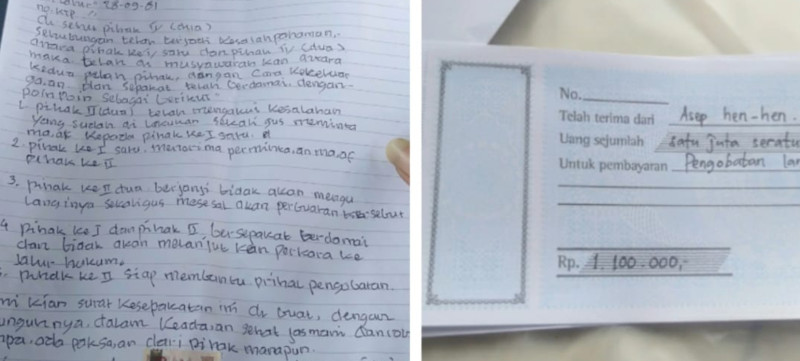 28-09-81
no. ktp :
di sebut pihak II (dua)
Sehubungan telah terjadi kesalah pahaman,
antara pihak ke I satu dan pihak II (dua)
maka telah di musyawarah kan antara
kedua belah pihak, dengan cara kekeluar
ga,an dan sepakat telah berdamai, dengan
poin Poin sebagai berikut:
1. pihak II (dua) telah mengakui kesalahan
yang sudah di lakukan sekali gus meminta
ma,af kepada pihak ke I satu.
2. pihak ke I satu. menerima perminta,an ma,af
Pihak ke II
3. pihak ke II dua berjanji tidak akan mengu
langinya sekaligus menyesal akan perbuatan sebut
4. pihak ke I dan pihak II bersepakat berdamai
dan tidak akan melanjut kan perkara ke
jalur hukum.
5. pihak ke II siap membantu prihal pengobatan.
mi kian surat kesepakatan ini di buat, dengan
ungguhnya, dalam keada,an sehat jasmani dan
npa, ada paksa,an dari pihak manapun.
No.
Telah terima dari Asep hen-hen.
Uang sejumlah satu juta seratu
Untuk pembayaran Pengobatan lan
Rp. 1.100.000,-